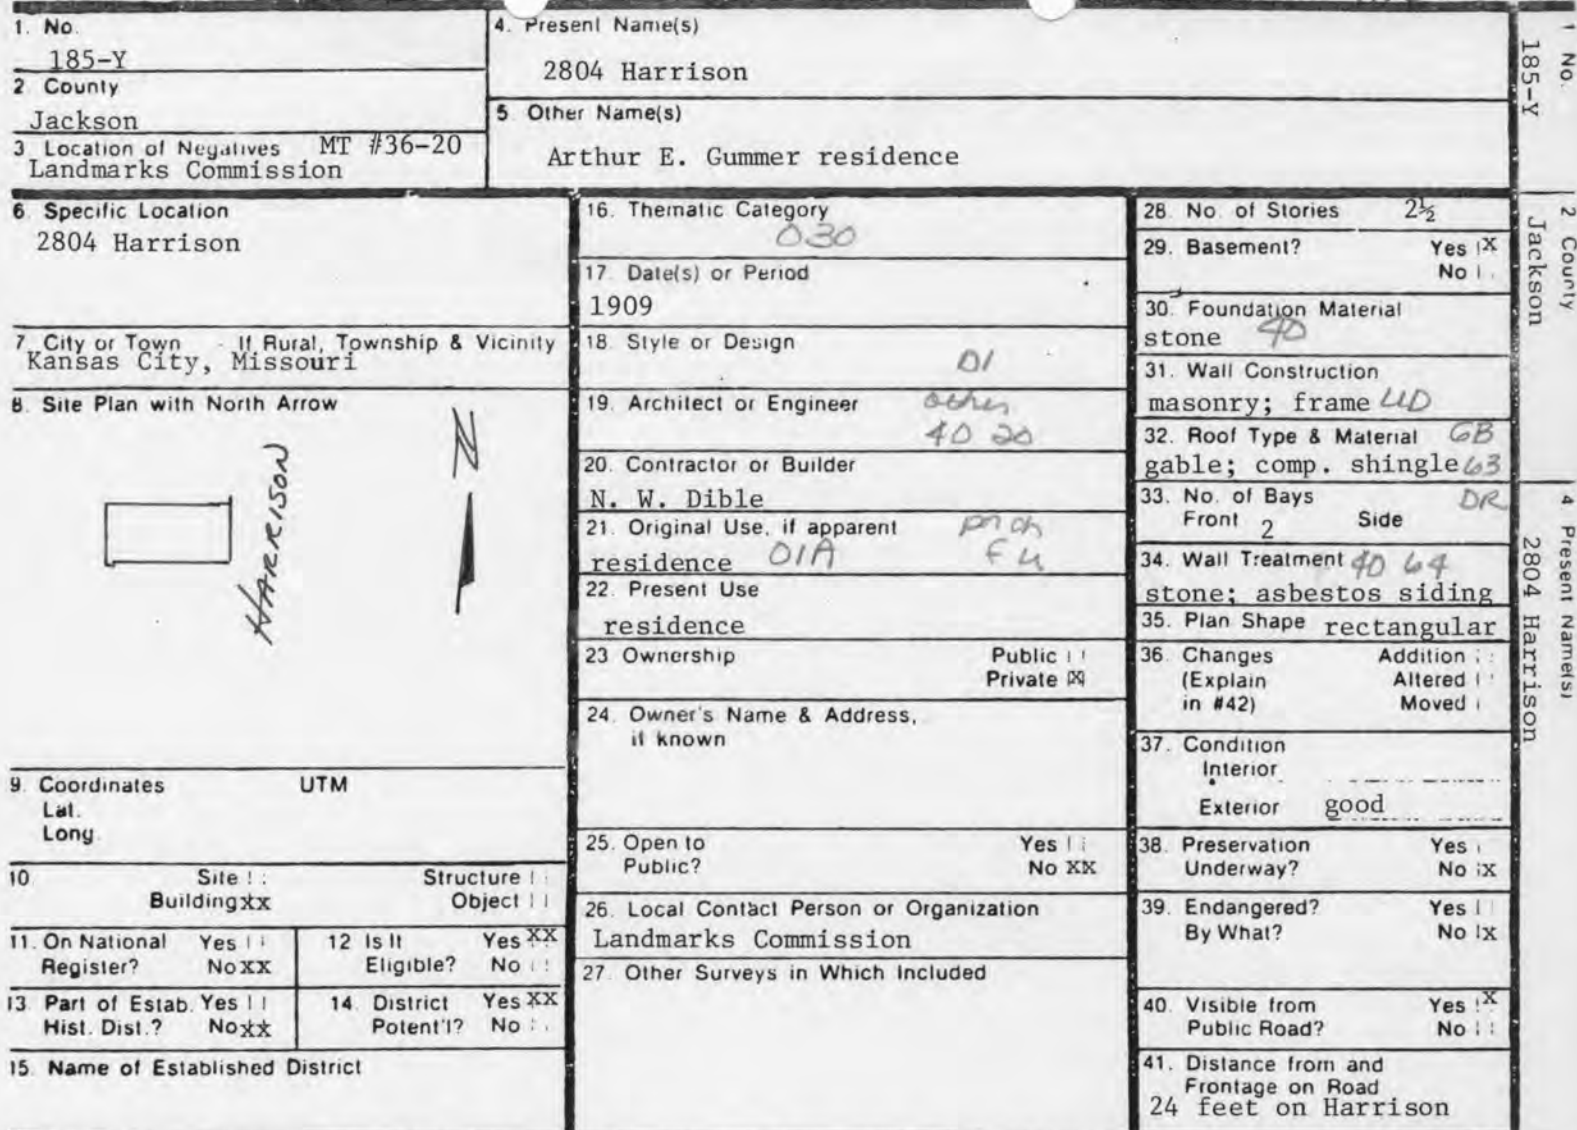 1. No.
185-Y
2 County
Jackson
3 Location of Negatives MT #36-20
Landmarks Commission
4. Present Name(s)
2804 Harrison
5 Other Name(s)
Arthur E. Gummer residence
6. Specific Location
2804 Harrison
7. City or Town If Rural, Township & Vicinity
Kansas City, Missouri
8. Site Plan with North Arrow
HARRISON
N
9. Coordinates UTM
Lat.
Long.
10 Site Structure
Building xx Object
11. On National Yes
Register? No XX
12 Is It Yes XX
Eligible? No
13. Part of Estab. Yes
Hist. Dist.? No xx
14. District Yes XX
Potent'l? No
15. Name of Established District
16. Thematic Category
030
17. Date(s) or Period
1909
18. Style or Design
D1
19. Architect or Engineer other
40 20
20. Contractor or Builder
N. W. Dible
21. Original Use, if apparent prch
residence 01A F 4
22. Present Use
residence
23 Ownership Public
Private X
24. Owner's Name & Address,
if known
25. Open to Yes
Public? No XX
26. Local Contact Person or Organization
Landmarks Commission
27. Other Surveys in Which Included
28. No. of Stories 2½
29. Basement? Yes X
No
30. Foundation Material
stone 40
31. Wall Construction
masonry; frame UD
32. Roof Type & Material GB
gable; comp. shingle 63
33. No. of Bays DR
Front 2 Side
34. Wall Treatment 40 64
stone; asbestos siding
35. Plan Shape rectangular
36. Changes Addition
(Explain Altered
in #42) Moved
37. Condition
Interior
Exterior good
38. Preservation Yes
Underway? No X
39. Endangered? Yes
By What? No X
40. Visible from Yes X
Public Road? No
41. Distance from and
Frontage on Road
24 feet on Harrison
1 No.
185-Y
2 County
Jackson
4 Present Name(s)
2804 Harrison